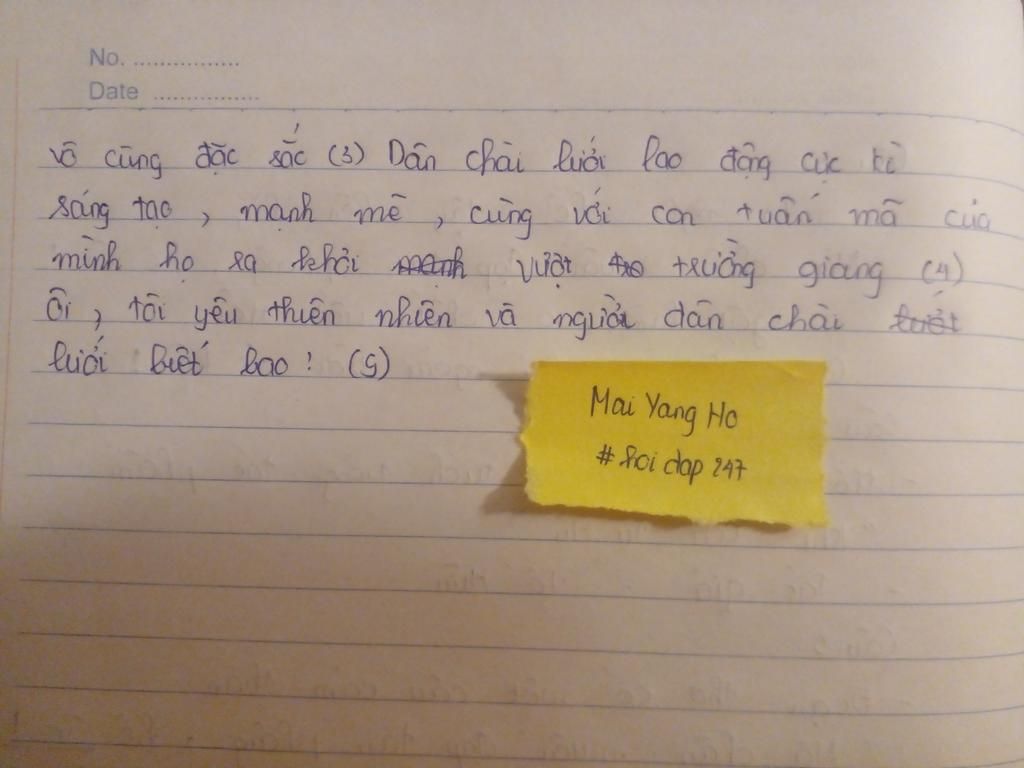 No. ................
Date ................
vô cùng đặc sắc (3) Dân chài lưới lao động cực kì
sáng tạo, mạnh mẽ, cùng với con tuấn mã của
mình họ ra khơi mạnh vượt tro trường giang (4)
Ôi, tôi yêu thiên nhiên và người dân chài lướt
lưới biết bao! (5)
Mai Yang Ho
# hoi dap 247